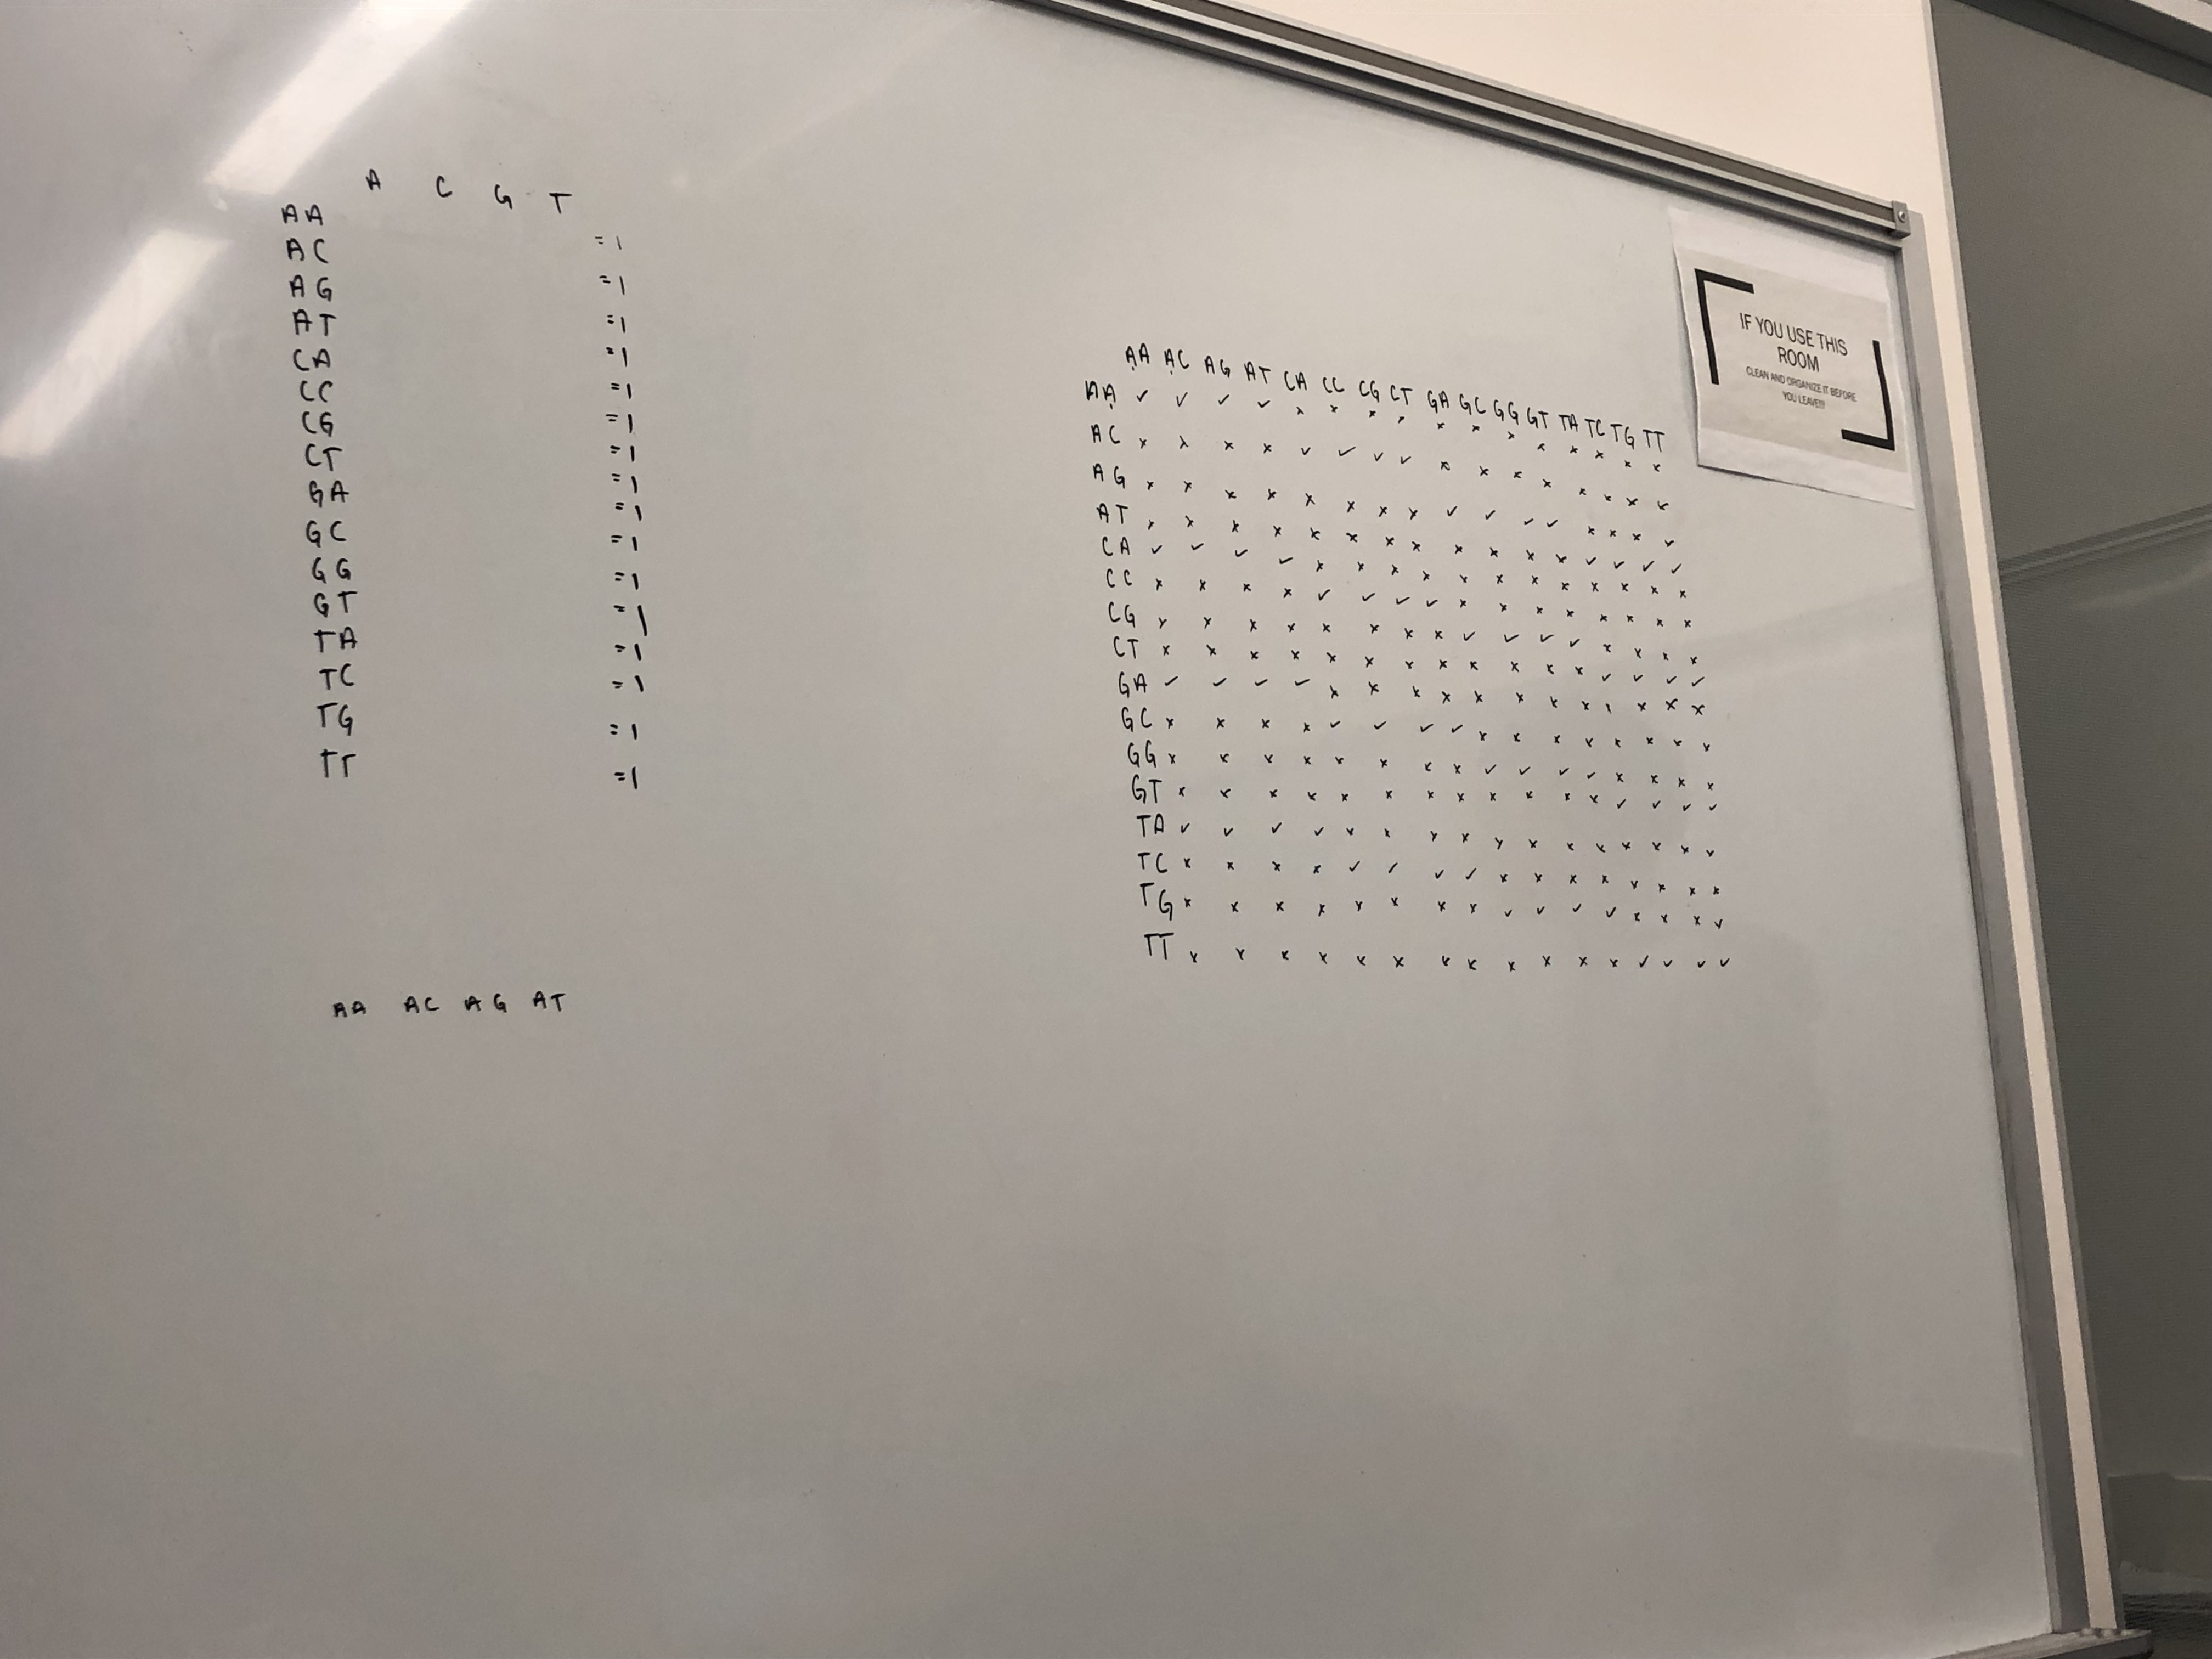 A C G T
AA =1
AC =1
AG =1
AT =1
CA =1
CC =1
CG =1
CT =1
GA =1
GC =1
GG =1
GT =1
TA =1
TC =1
TG =1
TT =1
AA AC AG AT
AA AC AG AT CA CC CG CT GA GC GG GT TA TC TG TT
AA ✓ ✓ ✓ ✓ x x x x x x x x x x x x
AC x x x x ✓ ✓ ✓ ✓ x x x x x x x x
AG x x x x x x x x ✓ ✓ ✓ ✓ x x x x
AT x x x x x x x x x x x x ✓ ✓ ✓ ✓
CA ✓ ✓ ✓ ✓ x x x x x x x x x x x x
CC x x x x ✓ ✓ ✓ ✓ x x x x x x x x
CG x x x x x x x x ✓ ✓ ✓ ✓ x x x x
CT x x x x x x x x x x x x ✓ ✓ ✓ ✓
GA ✓ ✓ ✓ ✓ x x x x x x x x x x x x
GC x x x x ✓ ✓ ✓ ✓ x x x x x x x x
GG x x x x x x x x ✓ ✓ ✓ ✓ x x x x
GT x x x x x x x x x x x x ✓ ✓ ✓ ✓
TA ✓ ✓ ✓ ✓ x x x x x x x x x x x x
TC x x x x ✓ ✓ ✓ ✓ x x x x x x x x
TG x x x x x x x x ✓ ✓ ✓ ✓ x x x x
TT x x x x x x x x x x x x ✓ ✓ ✓ ✓
IF YOU USE THIS
ROOM
CLEAN AND ORGANIZE IT BEFORE
YOU LEAVE!!!